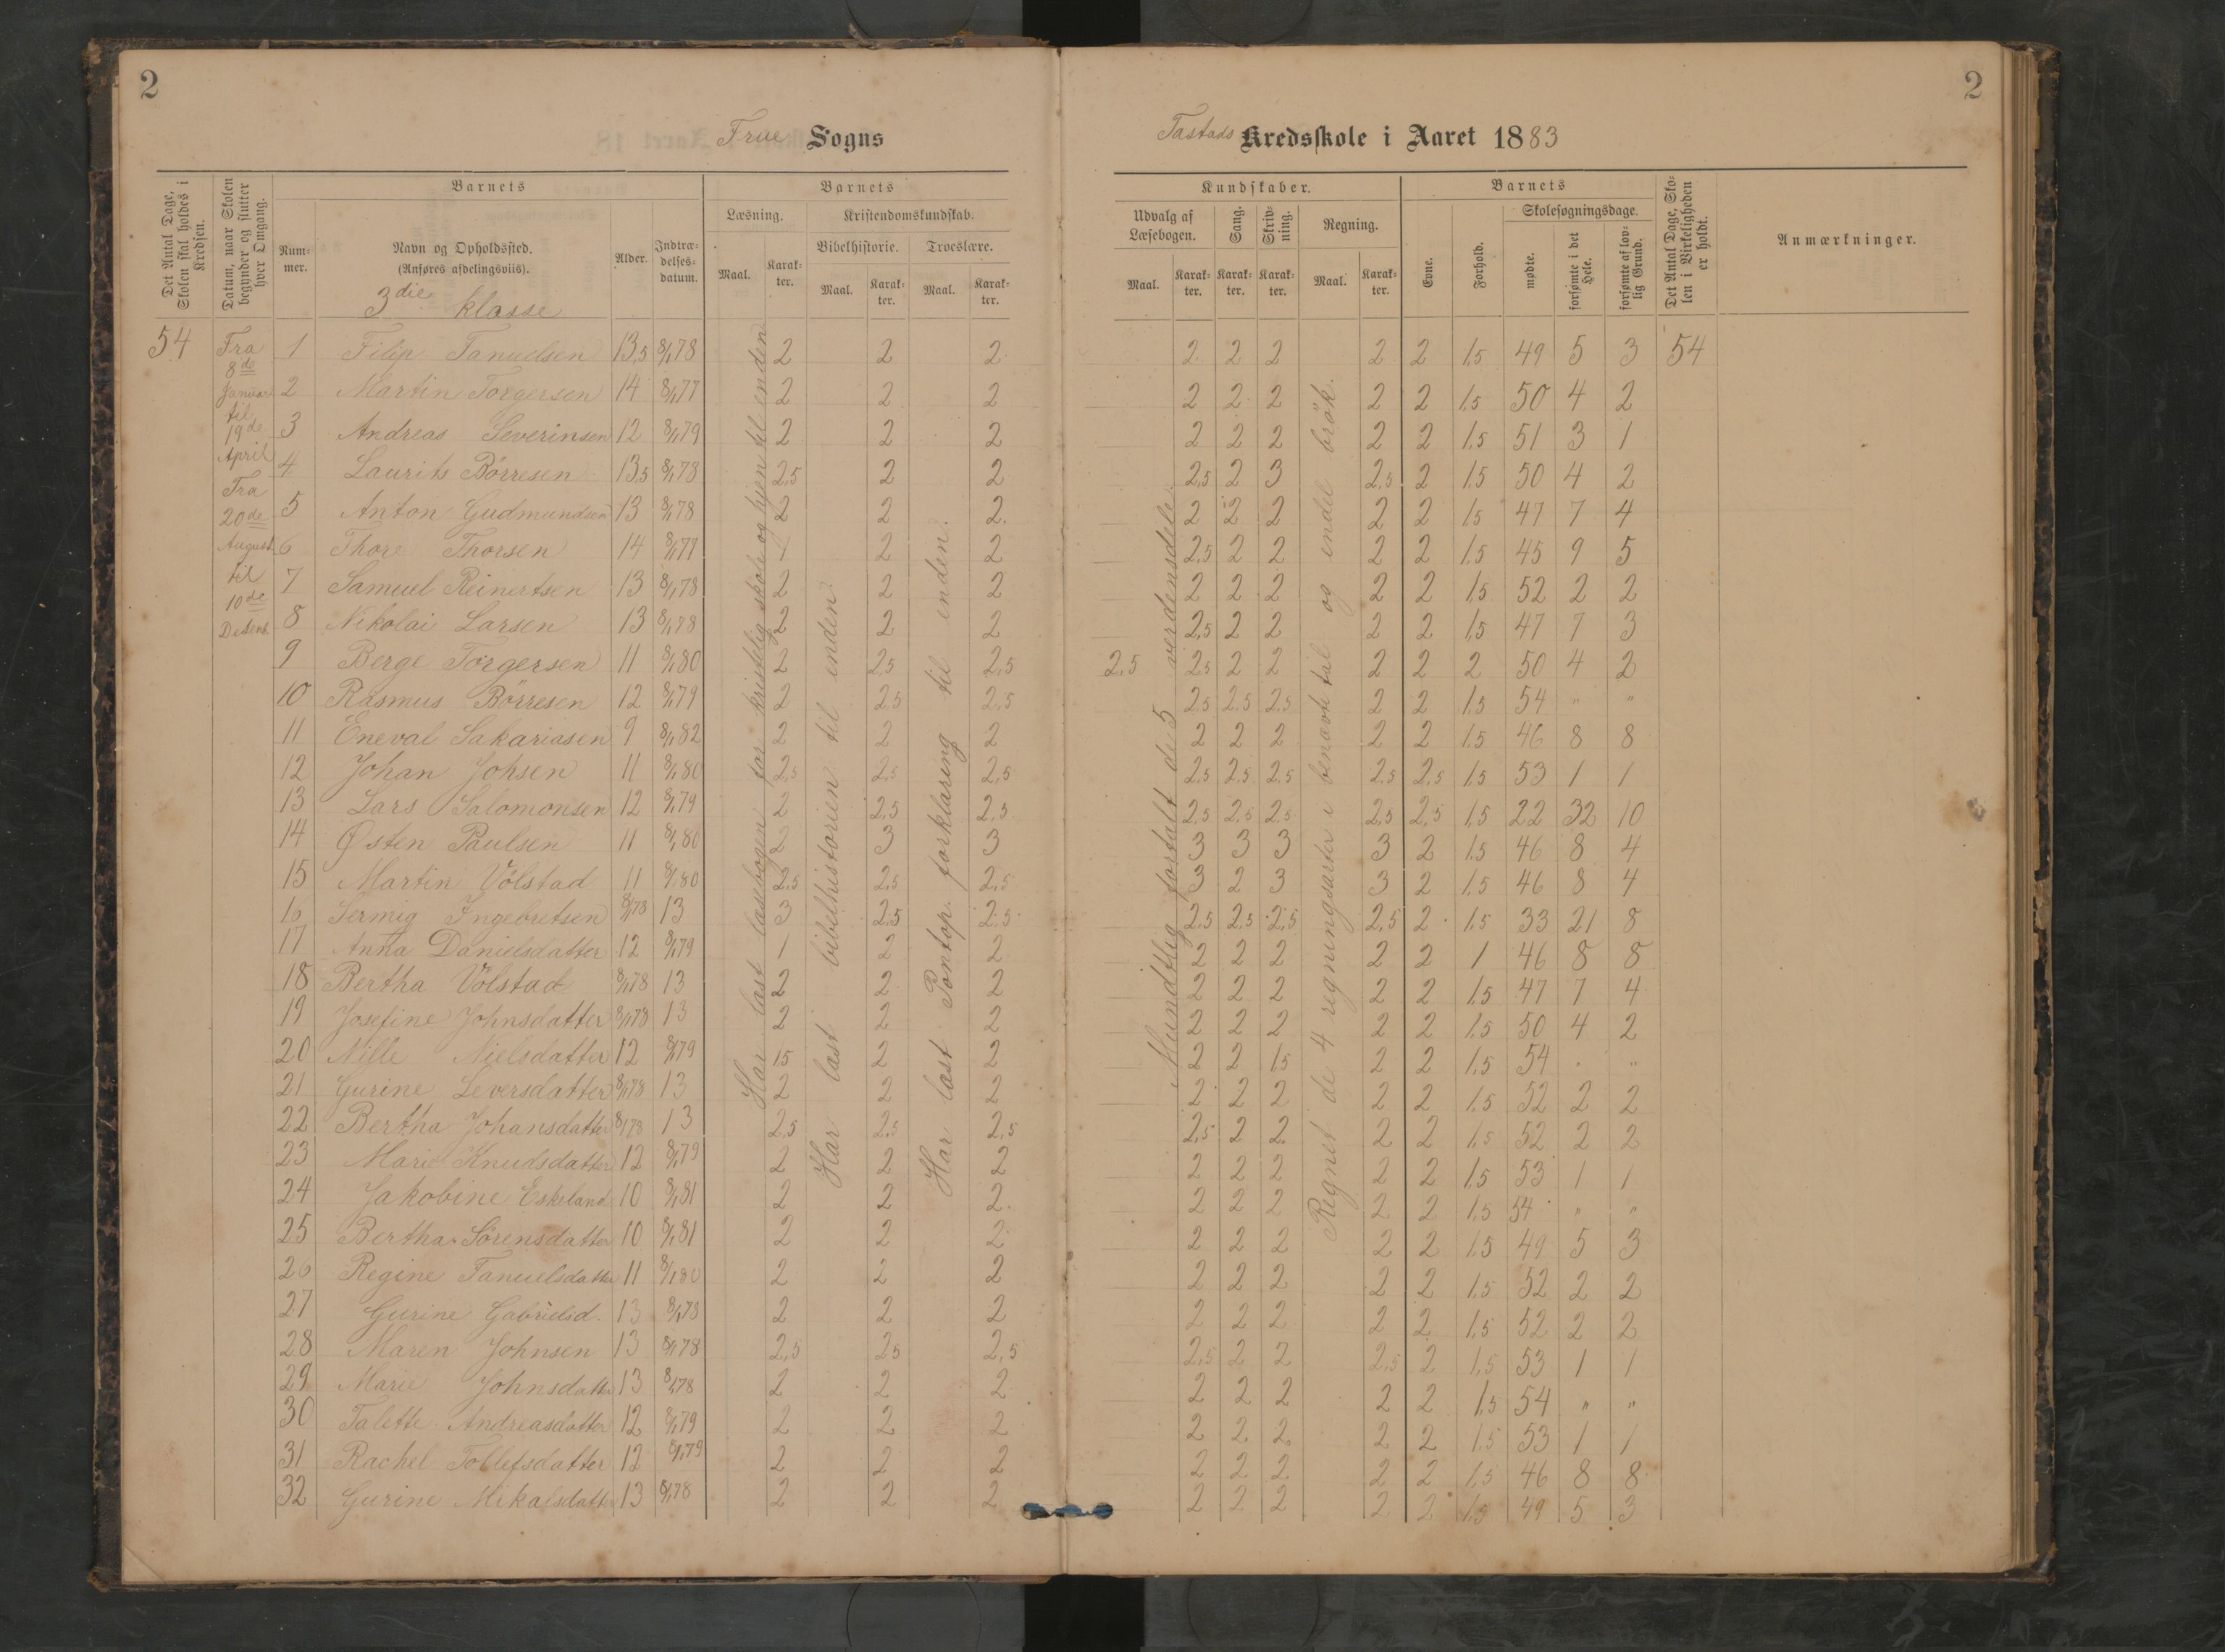 2
Frue Sogns
Tastads Kredsskole i Aaret 1883
2
Det Antal Dage, Skolen skal holdes i Kredsen.
Datum, naar Skolen begynder og slutter hver Omgang.
Barnets
Nummer.
Navn og Opholdssted.
(Anføres afdelingsviis).
3die klasse
Alder.
Indtrædelsesdatum.
Barnets
Læsning.
Maal.
Karakter.
Kristendomskundskab.
Bibelhistorie.
Maal.
Karakter.
Troeslære.
Maal.
Karakter.
Kundskaber.
Udvalg af Læsebogen.
Maal.
Karakter.
Sang.
Karakter.
Skrivning.
Karakter.
Regning.
Maal.
Karakter.
Barnets
Evne.
Forhold.
Skolesøgningsdage.
mødte.
forsømte i det Hele.
forsømte af lovlig Grund.
Det Antal Dage, Skolen i Virkeligheden er holdt.
Anmærkninger.
54
Fra
8de
Januar
til
19de
April
Fra
20de
August
til
10de
Desemb.
Har læst læsebogen for kristelig skole og hjem til enden
Har læst bibelhistorien til enden
Har læst Pontop. forklaring til enden.
Mundtlig fortalt de 5 verdensdele.
Regnet de 4 regningsarter i benævnte tal og endel brök.
1 Filip Tanuelsen 13,5 8/1 78 2 2 2 2 2 2 2 2 1,5 49 5 3 54
2 Martin Torgersen 14 8/1 77 2 2 2 2 2 2 2 2 1,5 50 4 2
3 Andreas Severinsen 12 8/1 79 2 2 2 2 2 2 2 2 1,5 51 3 1
4 Laurits Börresen 13,5 8/1 78 2,5 2 2 2,5 2 3 2,5 2 1,5 50 4 2
5 Anton Gudmundsen 13 8/1 78 2 2 2. 2 2 2 2 2 1,5 47 7 4
6 Thore Thorsen 14 8/1 77 1 2 2 2,5 2 2 2 2 1,5 45 9 5
7 Samuel Reinertsen 13 8/1 78 2 2 2 2 2 2 2 2 1,5 52 2 2
8 Nikolai Larsen 13 8/1 78 2 2 2 2,5 2 2 2 2 1,5 47 7 3
9 Berge Torgersen 11 8/1 80 2 2,5 2,5 2,5 2,5 2 2 2 2 2 50 4 2
10 Rasmus Börresen 12 8/1 79 2 2,5 2,5 2,5 2,5 2,5 2 2 1,5 54 " "
11 Eneval Sakariasen 9 8/1 82 2 2 2 2 2 2 2 2 1,5 46 8 8
12 Johan Johsen 11 8/1 80 2,5 2,5 2,5 2,5 2,5 2,5 2,5 2,5 1,5 53 1 1
13 Lars Salomonsen 12 8/1 79 2 2,5 2,5 2,5 2,5 2,5 2,5 2,5 1,5 22 32 10
14 Østen Paulsen 11 8/1 80 2 3 3 3 3 3 3 2 1,5 46 8 4
15 Martin Völstad 11 8/1 80 2,5 2,5 2,5 3 2 3 3 2 1,5 46 8 4
16 Ingebretsen 8/1 78 13 3 2,5 2,5 2,5 2,5 2,5 2,5 2 1,5 33 21 8
17 Anna Danielsdatter 12 8/1 79 1 2 2 2 2 2 2 2 1 46 8 8
18 Bertha Völstad 8/1 78 13 2 2 2 2 2 2 2 2 1,5 47 7 4
19 Josefine Johnsdatter 8/1 78 13 2 2 2 2 2 2 2 2 1,5 50 4 2
20 Nille Nielsdatter 12 8/1 79 1,5 2 2 2 2 1,5 2 2 1,5 54 " "
21 Gurine Seversdatter 8/1 78 13 2 2 2 2 2 2 2 2 1,5 52 2 2
22 Bertha Johansdatter 8/1 78 13 2,5 2,5 2,5 2,5 2 2 2 2 1,5 52 2 2
23 Marie Knudsdatter 12 8/1 79 2 2 2 2 2 2 2 2 1,5 53 1 1
24 Jakobine Eskeland 10 8/1 81 2 2 2. 2 2 2 2 2 1,5 54 " "
25 Bertha Sörensdatter 10 8/1 81 2 2 2 2 2 2 2 2 1,5 49 5 3
26 Regine Tanuelsdatter 11 8/1 80 2 2 2 2 2 2 2 2 1,5 52 2 2
27 Gurine Gabrielsd. 13 8/1 78 2 2 2 2 2 2 2 2 1,5 52 2 2
28 Maren Johnsen 13 8/1 78 2,5 2,5 2,5 2,5 2 2 2,5 2 1,5 53 1 1
29 Marie Johnsdatter 13 8/1 78 2 2 2 2 2 2 2 2 1,5 54 " "
30 Talette Andreasdatter 12 8/1 79 2 2 2 2 2 2 2 2 1,5 53 1 1
31 Rachel Tollefsdatter 12 8/1 79 2 2 2 2 2 2 2 2 1,5 46 8 8
32 Gurine Mikalsdatter 13 8/1 78 2 2 2 2 2 2 2 2 1,5 49 5 3